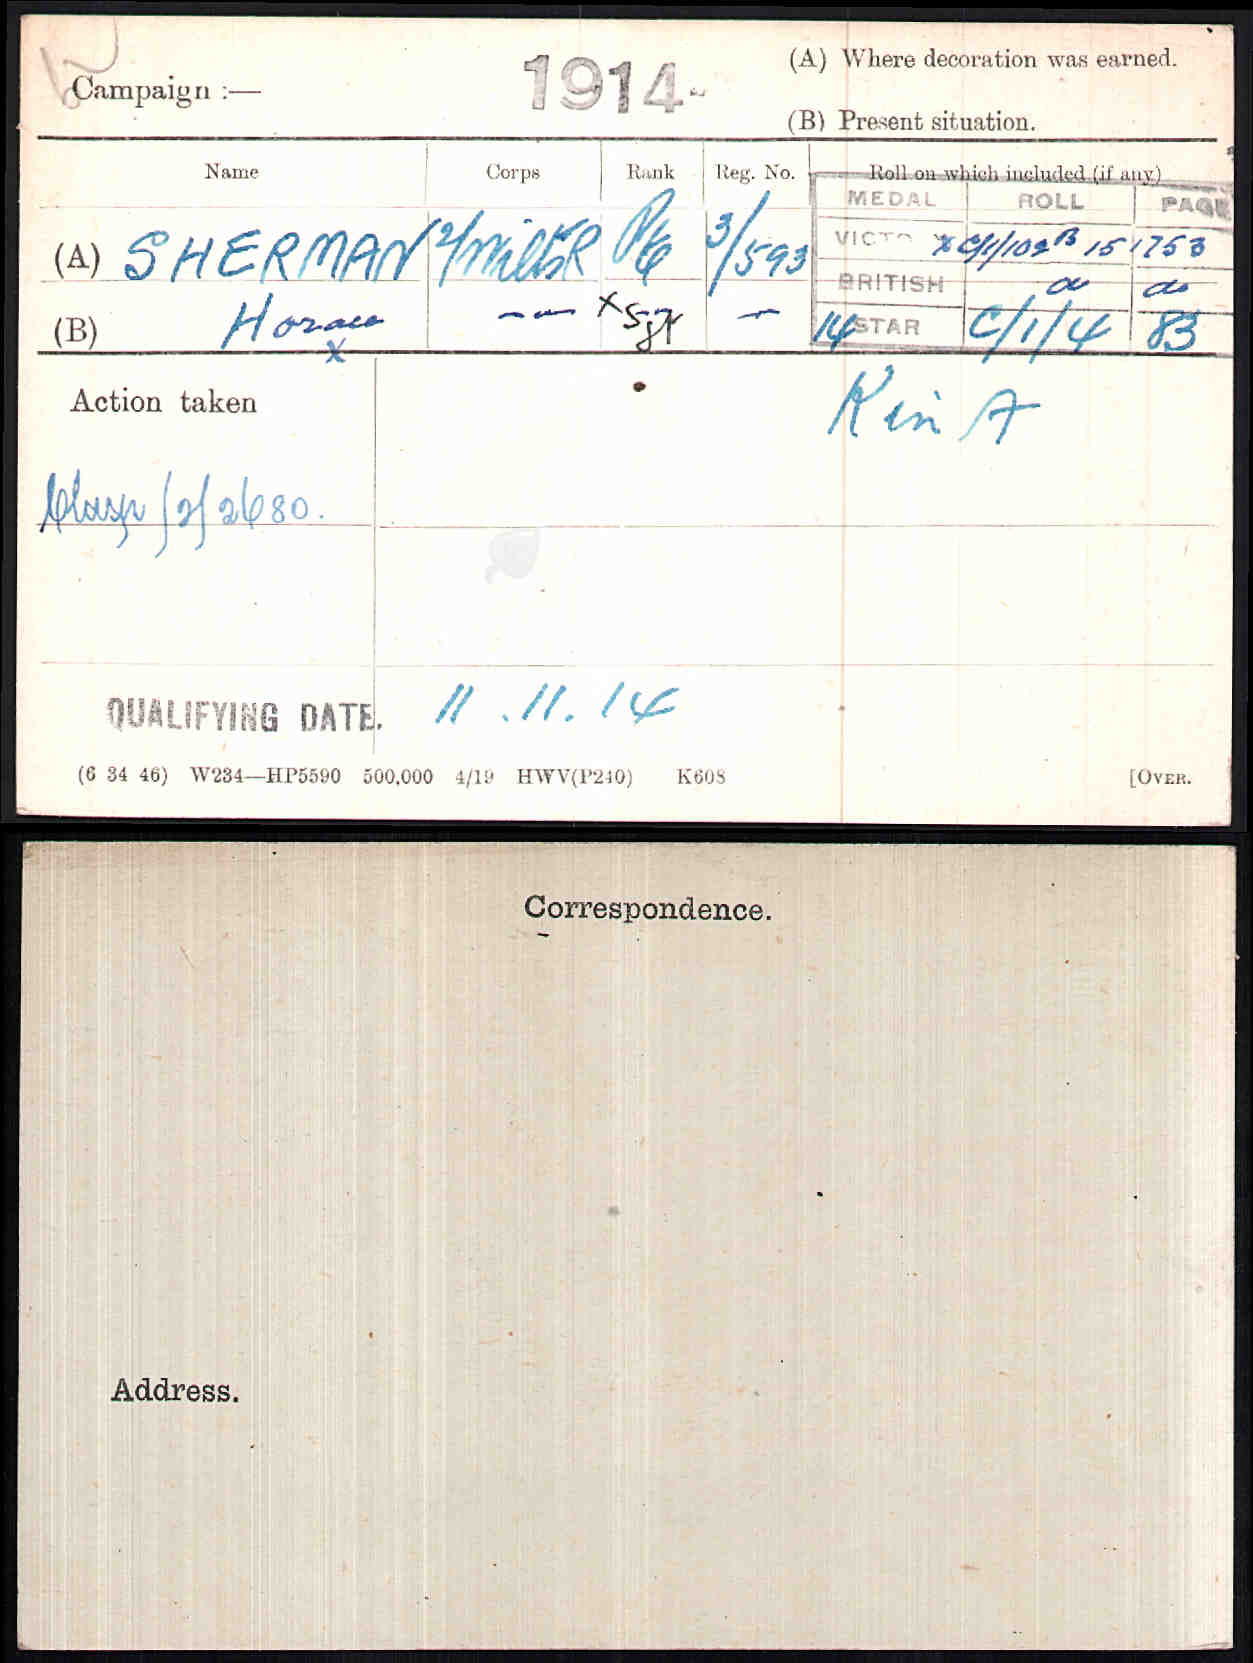 Campaign :—
1914-
(A) Where decoration was earned.
(B) Present situation.
Name Corps Rank Reg. No. Roll on which included (if any)
MEDAL ROLL PAGE
(A) SHERMAN 2/Wilts R Pte 3/593
VICTO x C/1/102 B 15 1753
BRITISH do do
(B) Horace x — — x Sgt —
14 STAR C/1/4 83
Action taken
K in A
Clasp /2/ 2680.
QUALIFYING DATE. 11.11.14
(6 34 46) W234—HP5590 500,000 4/19 HWV(P240) K608 [OVER.
Correspondence.
Address.